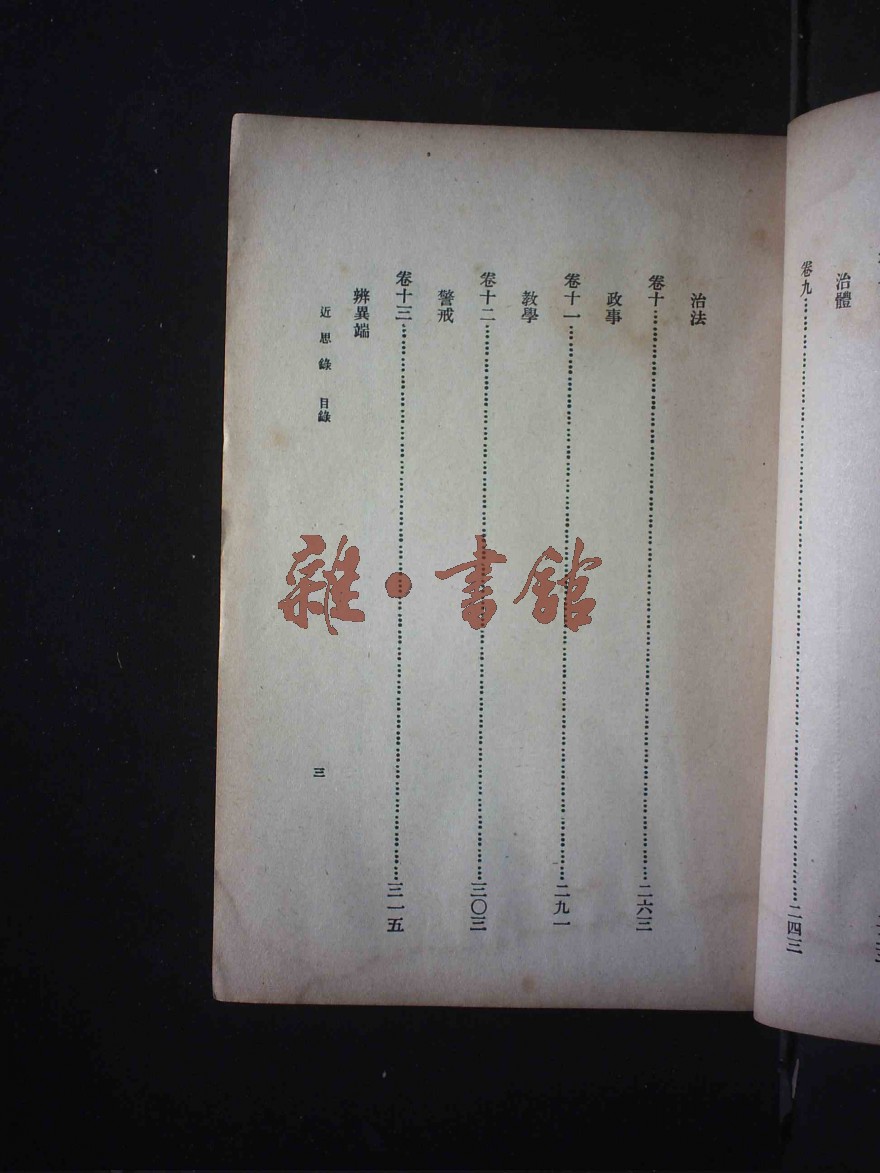 治體
卷九……二四三
治法
卷十……二六三
政事
卷十一……二九一
教學
卷十二……三〇三
警戒
卷十三……三一五
辨異端
近思錄 目錄
三
雜·書館